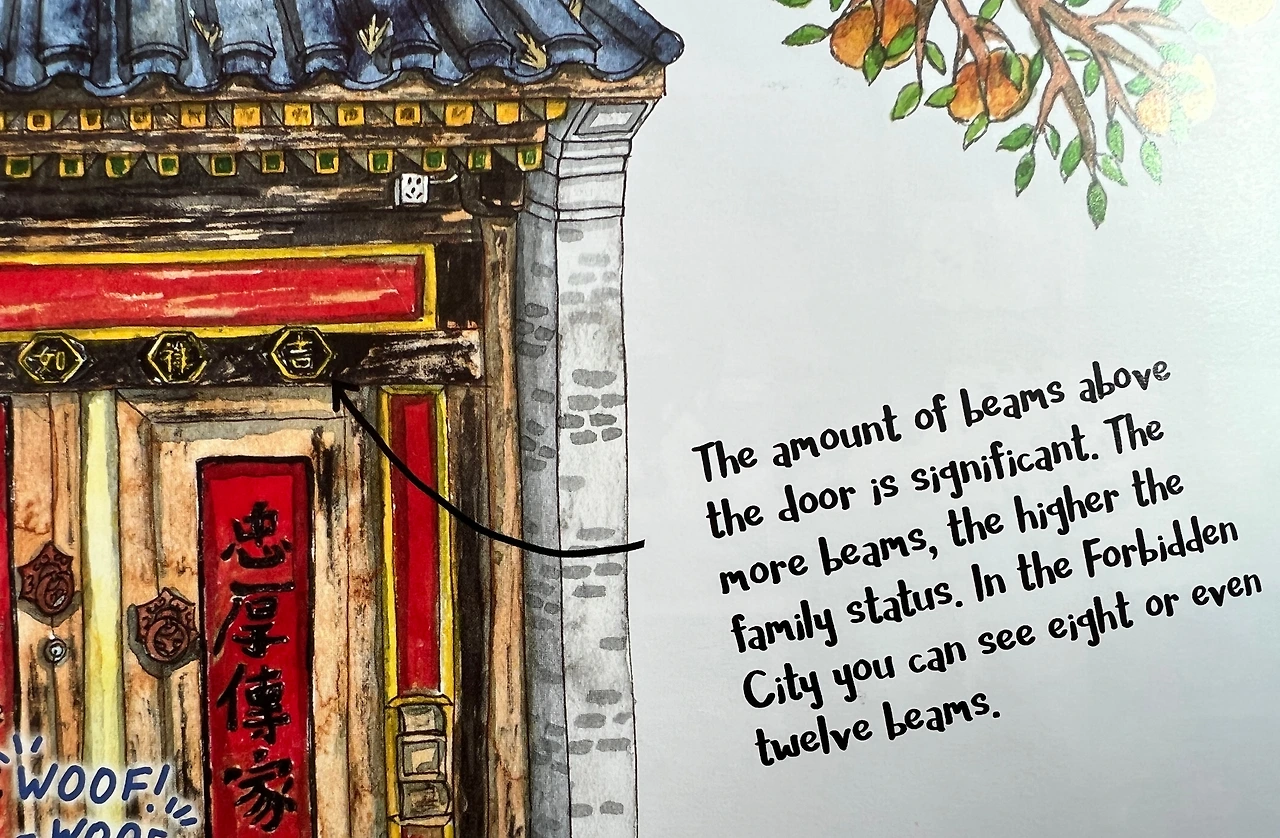 如 祥 吉
忠厚傳家
The amount of beams above
the door is significant. The
more beams, the higher the
family status. In the Forbidden
City you can see eight or even
twelve beams.
WOOF!
WOOF